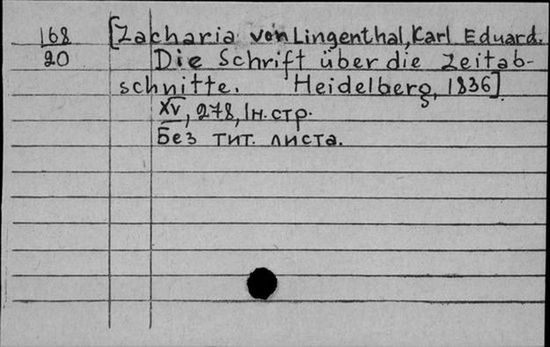 168 [Zacharia von Lingenthal, Karl Eduard.
20 Die Schrift über die Zeitab-
schnitte. Heidelberg, 1836]
XV, 278, 1 н. стр.
Без тит. листа.